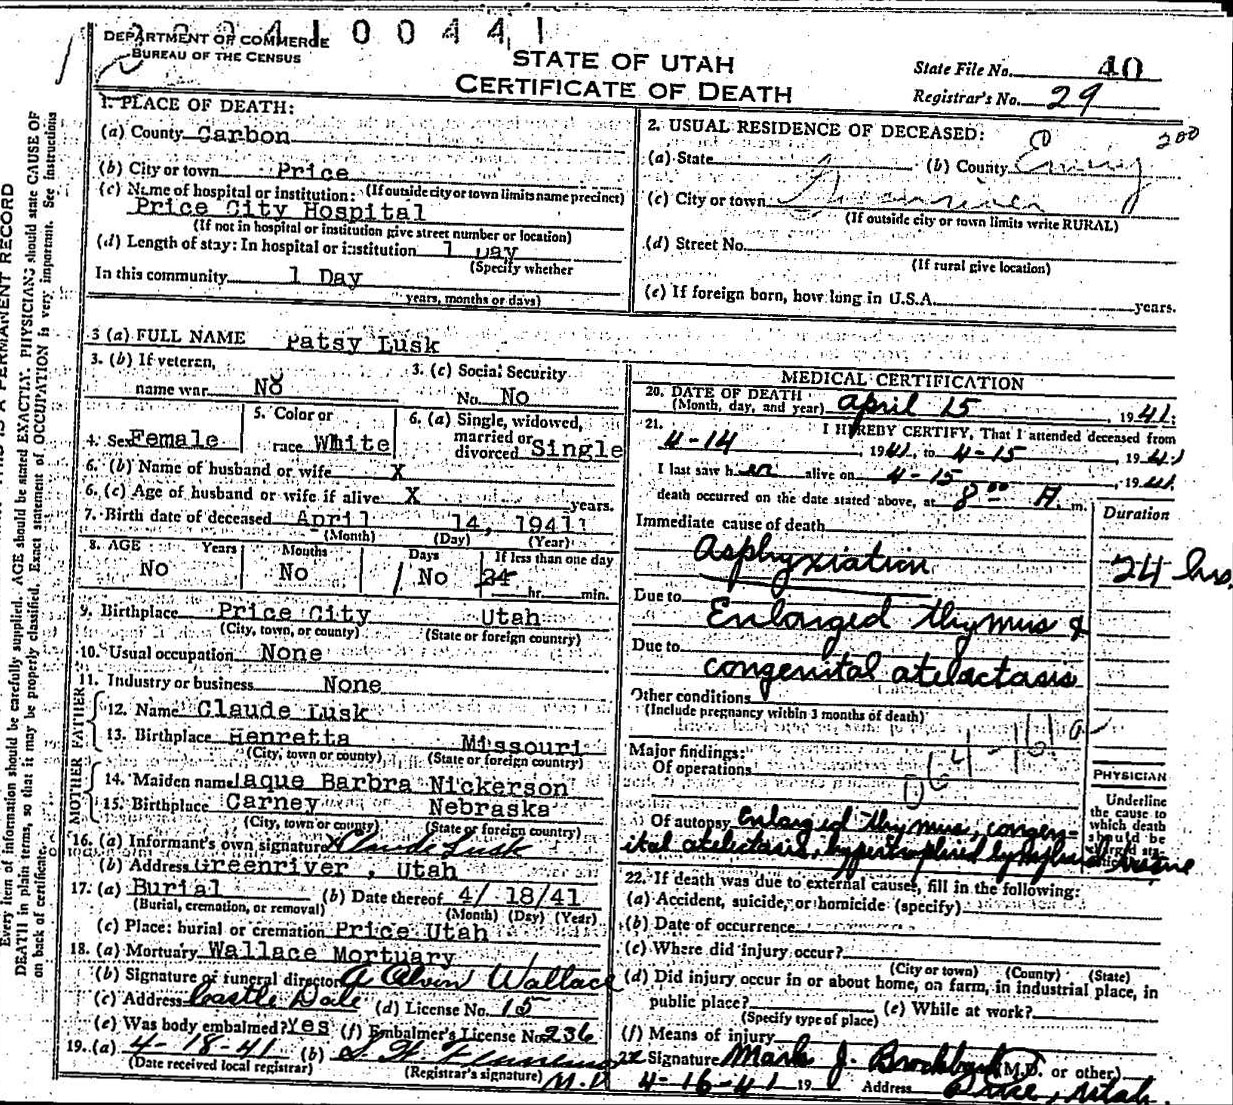 2 0 0 4 1 0 0 4 4 1
DEPARTMENT OF COMMERCE
BUREAU OF THE CENSUS
STATE OF UTAH
CERTIFICATE OF DEATH
State File No. 40
Registrar's No. 29
1. PLACE OF DEATH:
(a) County Carbon
(b) City or town Price
(If outside city or town limits name precinct)
(c) Name of hospital or institution:
Price City Hospital
(If not in hospital or institution give street number or location)
(d) Length of stay: In hospital or institution 1 Day
(Specify whether
In this community 1 Day
years, months or days)
2. USUAL RESIDENCE OF DECEASED:
200
(a) State (b) County Emery
(c) City or town Greenriver
(If outside city or town limits write RURAL)
(d) Street No.
(If rural give location)
(e) If foreign born, how long in U.S.A. years.
3 (a) FULL NAME Patsy Lusk
3. (b) If veteran,
name war No
3. (c) Social Security
No. No
4. Sex Female
5. Color or
race White
6. (a) Single, widowed,
married or
divorced Single
6. (b) Name of husband or wife X
6. (c) Age of husband or wife if alive X years.
7. Birth date of deceased April 14, 1941
(Month) (Day) (Year)
8. AGE Years Months Days If less than one day
No No No 24 hr. min.
9. Birthplace Price City Utah
(City, town, or county) (State or foreign country)
10. Usual occupation None
11. Industry or business None
FATHER
12. Name Claude Lusk
13. Birthplace Henretta Missouri
(City, town or county) (State or foreign country)
MOTHER
14. Maiden name Jaque Barbra Nickerson
15. Birthplace Carney Nebraska
(City, town or county) (State or foreign country)
16. (a) Informant's own signature Claude Lusk
(b) Address Greenriver, Utah
17. (a) Burial (b) Date thereof 4/ 18/41
(Burial, cremation, or removal) (Month) (Day) (Year)
(c) Place: burial or cremation Price Utah
18. (a) Mortuary Wallace Mortuary
(b) Signature of funeral director A Alvin Wallace
(c) Address Castle Dale (d) License No. 15
(e) Was body embalmed? Yes (f) Embalmer's License No. 236
19. (a) 4-18-41 (b)
(Date received local registrar) (Registrar's signature) M.D.
MEDICAL CERTIFICATION
20. DATE OF DEATH
(Month, day, and year) April 15, 1941.
21. I HEREBY CERTIFY, That I attended deceased from
4-14, 1941, to 4-15, 1941
I last saw her alive on 4-15, 1941.
death occurred on the date stated above, at 8 00 A. m.
Duration
Immediate cause of death
Asphyxiation 24 hrs.
Due to
Enlarged thymus &
Due to
congenital atelactasis
Other conditions
(Include pregnancy within 3 months of death)
Major findings:
Of operations
PHYSICIAN
Underline
the cause to
which death
should be
charged sta-
Of autopsy Enlarged thymus, congen-
ital atelactasis, hypertrophied
22. If death was due to external causes, fill in the following:
(a) Accident, suicide, or homicide (specify)
(b) Date of occurrence
(c) Where did injury occur?
(City or town) (County) (State)
(d) Did injury occur in or about home, on farm, in industrial place, in
public place? (e) While at work?
(Specify type of place)
(f) Means of injury
Signature Mark J. (M.D. or other)
4-16-41 19 Address Price, Utah.
Every item of information should be carefully supplied. AGE should be stated EXACTLY. PHYSICIANS should state CAUSE OF
DEATH in plain terms, so that it may be properly classified. Exact statement of OCCUPATION is very important. See instructions
on back of certificate.
IS A PERMANENT RECORD